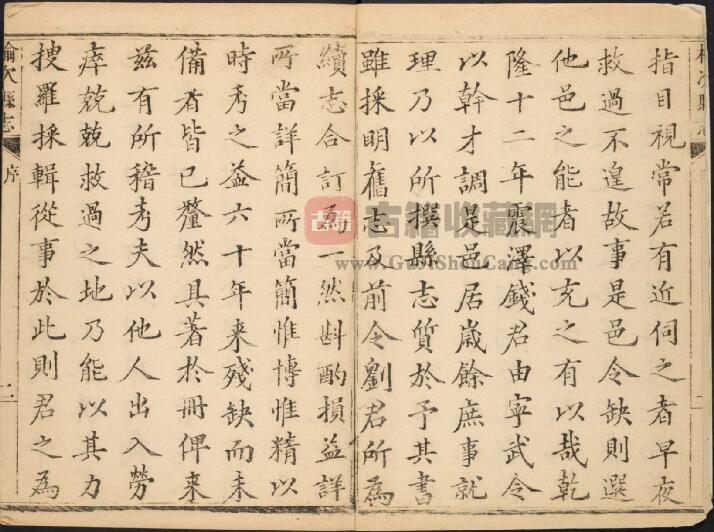 指目視常若有近伺之者早夜
救過不遑故事是邑令缺則選
他邑之能者以充之有以哉乾
隆十二年震澤錢君由寧武令
以幹才調是邑居歲餘庶事就
理乃以所撰縣志質於予其書
雖採明舊志及前令劉君所為
續志合訂為一然斟酌損益詳
所當詳簡所當簡惟博惟精以
時考之益六十年来殘缺而未
備者皆已釐然具著於冊俾来
茲有所稽考夫以他人出入勞
瘁兢兢救過之地乃能以其力
搜羅採輯從事於此則君之為
榆次縣志
序
二
古籍
古籍收藏網
www.GuJiShouCang.com